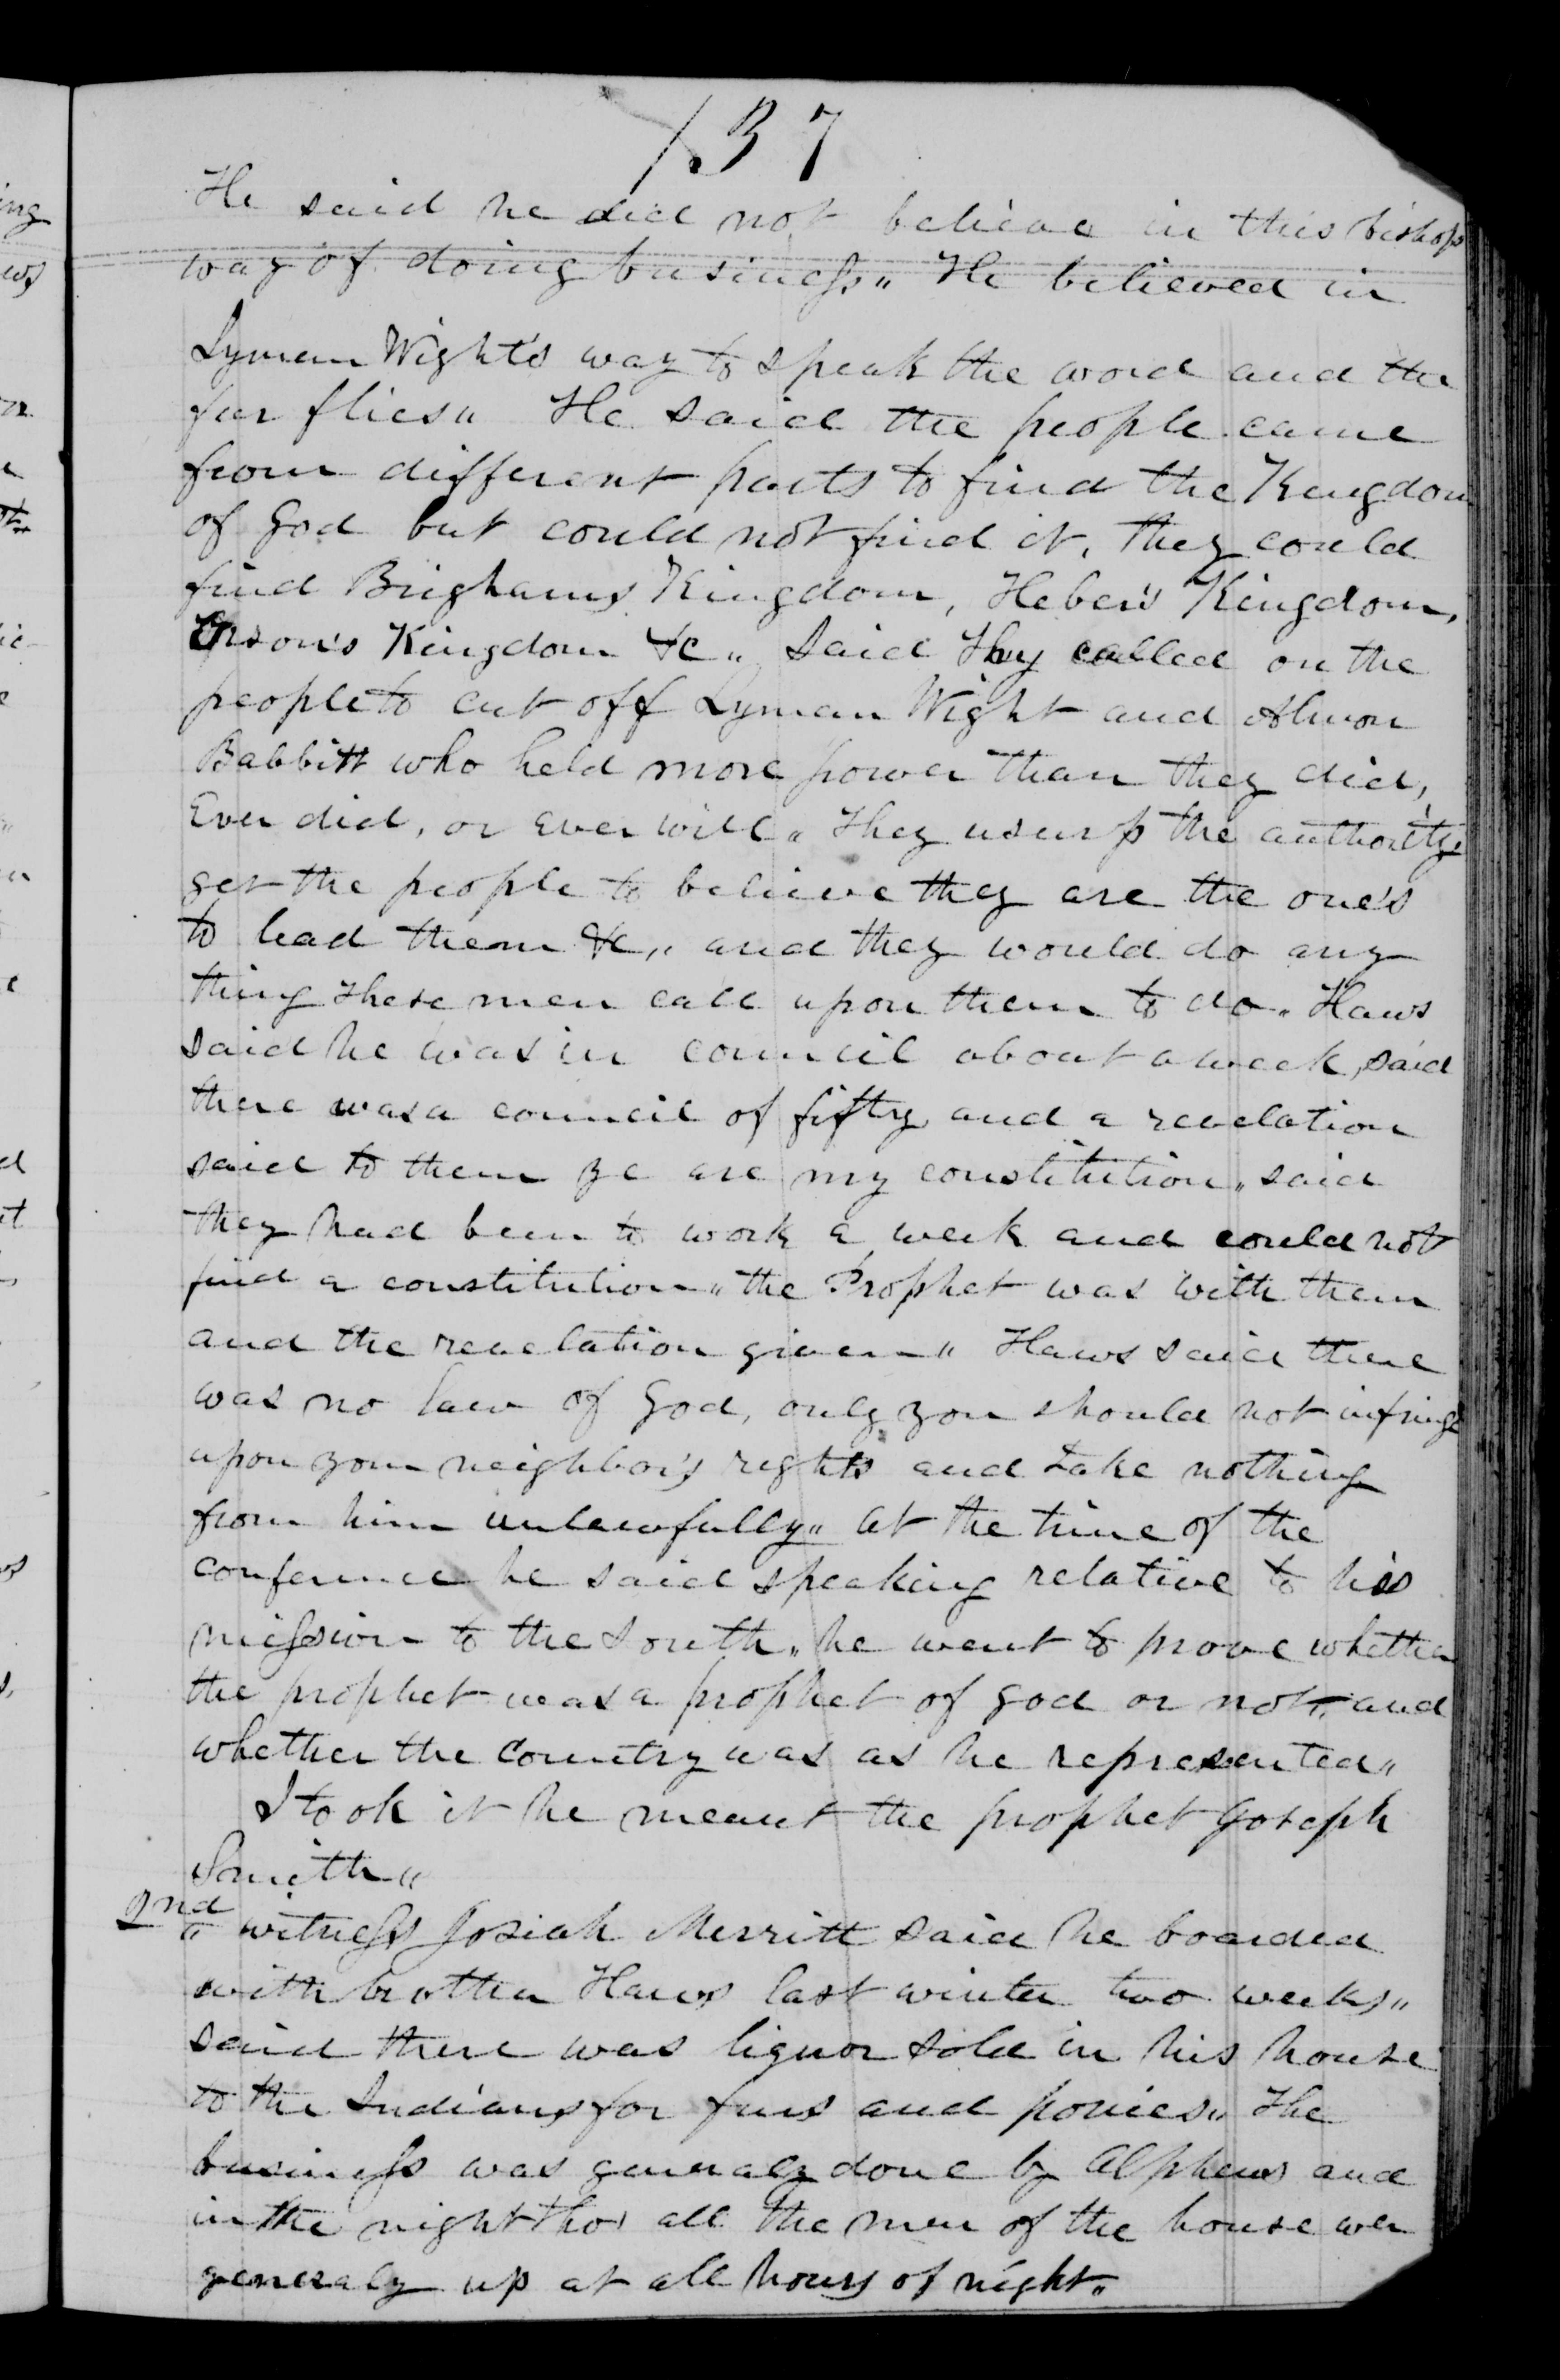 137
He said he did not believe in this bishop
way of doing business„ He believed in
Lyman Wight's way to speak the word and the
fur flies„ He said the people came
from different parts to find the Kingdom
of God but could not find it, they could
find Brighams Kingdom, Heber's Kingdom,
Orson's Kingdom &c„ Said They called on the
people to cut off Lyman Wight and Almon
Babbitt who held more power than they did,
Ever did, or ever will„ They usurp the authority
get the people to believe they are the one's
to lead them &c„ and they would do any
thing these men call upon them to do„ Haws
said he was in council about a week, said
there was a council of fifty and a revelation
said to them ye are my constitution„ said
they had been to work a week and could not
find a constitution„ the Prophet was with them
and the revelation given„ Haws said there
was no law of God, only you should not infringe
upon your neighbor's rights and take nothing
from him unlawfully„ At the time of the
conference he said speaking relative to his
mission to the South„ he went to prove whether
the prophet was a prophet of God or not, and
whether the country was as he represented„
I took it he meant the prophet Joseph
Smith„
2nd„ witness Josiah Merritt said he boarded
with brother Haws last winter two weeks„
said there was liquor sold in his house
to the Indians for furs and ponies„ The
business was generaly done by Alpheus and
in the night tho' all the men of the house wer
generaly up at all hours of night„